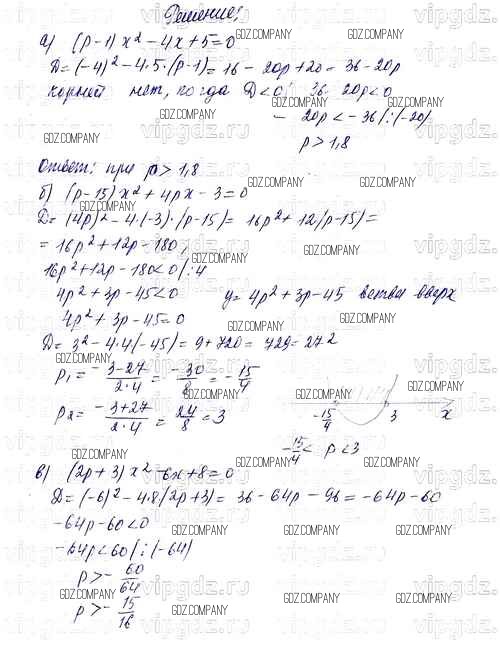 Решение:
а) (p-1)x² - 4x + 5 = 0
D = (-4)² - 4·5·(p-1) = 16 - 20p + 20 = 36 - 20p
корней нет, когда D < 0, 36 - 20p < 0
- 20p < - 36 /:(-20)
p > 1,8
Ответ: при p > 1,8
б) (p-15)x² + 4px - 3 = 0
D = (4p)² - 4·(-3)·(p-15) = 16p² + 12(p-15) =
= 16p² + 12p - 180,
16p² + 12p - 180 < 0 /:4
4p² + 3p - 45 < 0 y = 4p² + 3p - 45 ветви вверх
4p² + 3p - 45 = 0
D = 3² - 4·4(-45) = 9 + 720 = 729 = 27²
p₁ = -3-27/2·4 = -30/8 = -15/4
p₂ = -3+27/2·4 = 24/8 = 3
-15/4 3 x
-15/4 < p < 3
в) (2p+3)x² - 6x + 8 = 0
D = (-6)² - 4·8(2p+3) = 36 - 64p - 96 = -64p - 60
-64p - 60 < 0
-64p < 60 /:(-64)
p > - 60/64
p > - 15/16
GDZ.COMPANY
vipgdz.ru